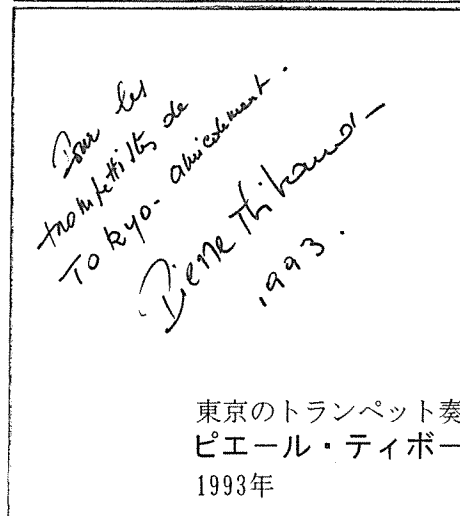 Pour les
trompettistes de
Tokyo - amicalement.
Pierre Thibaud
1993.
東京のトランペット奏
ピエール・ティボー
1993年